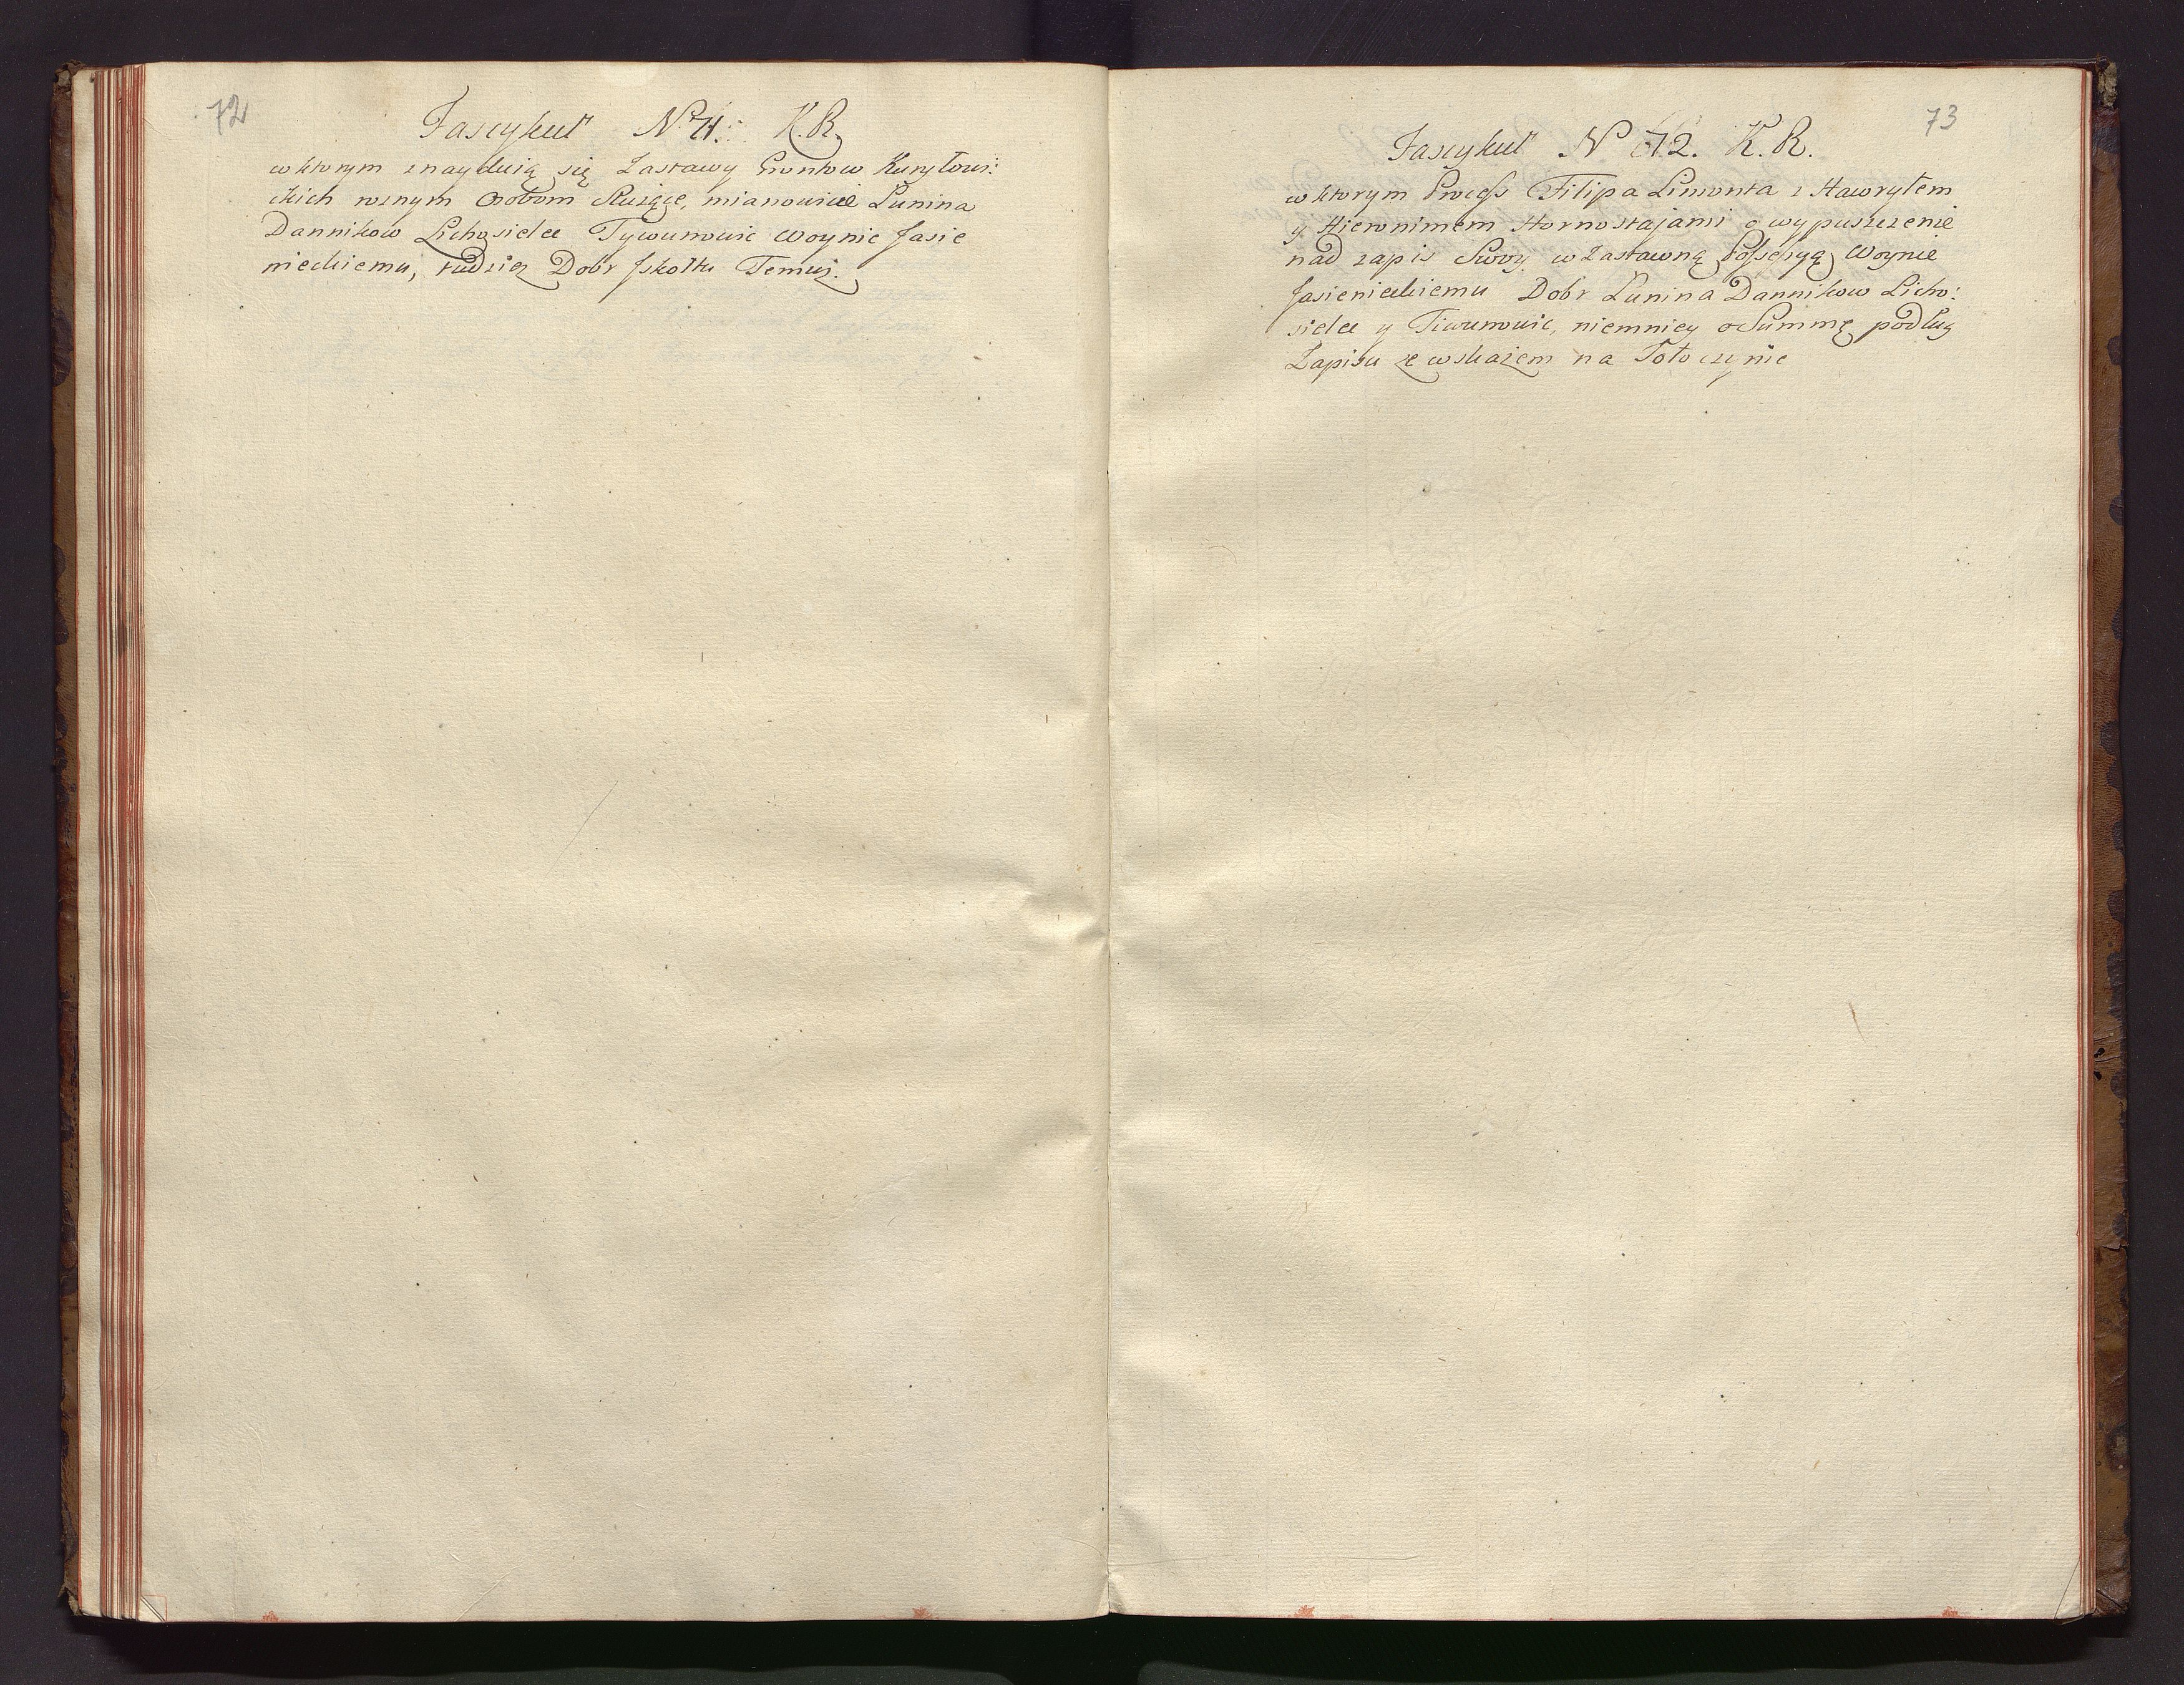 72
Fascykuł N. 71. K. R.
w ktorym znayduią się Zastawy Gruntow Kuryłowi:
ckich roznym Osobom Służące, mianowicie Lunina
Dannikow Lichosielce Tywunowic Woynie Jasie
nieckiemu, tudziez Dobr Jskołtu Temuż.
73
Fascykuł N 72. K. R.
w ktorym Process Filipa Limonta z Hawryłem
y Hieronimem Hornostajami o wypuszczenie
nad zapis Swoy w zastawną Possesyą Woynie
Jasienieckiemu Dobr Lunina Dannikow Licho:
sielce y Tiwunowic, niemniey o Summę podług
Zapisu ze wskazem na Tołoczynie